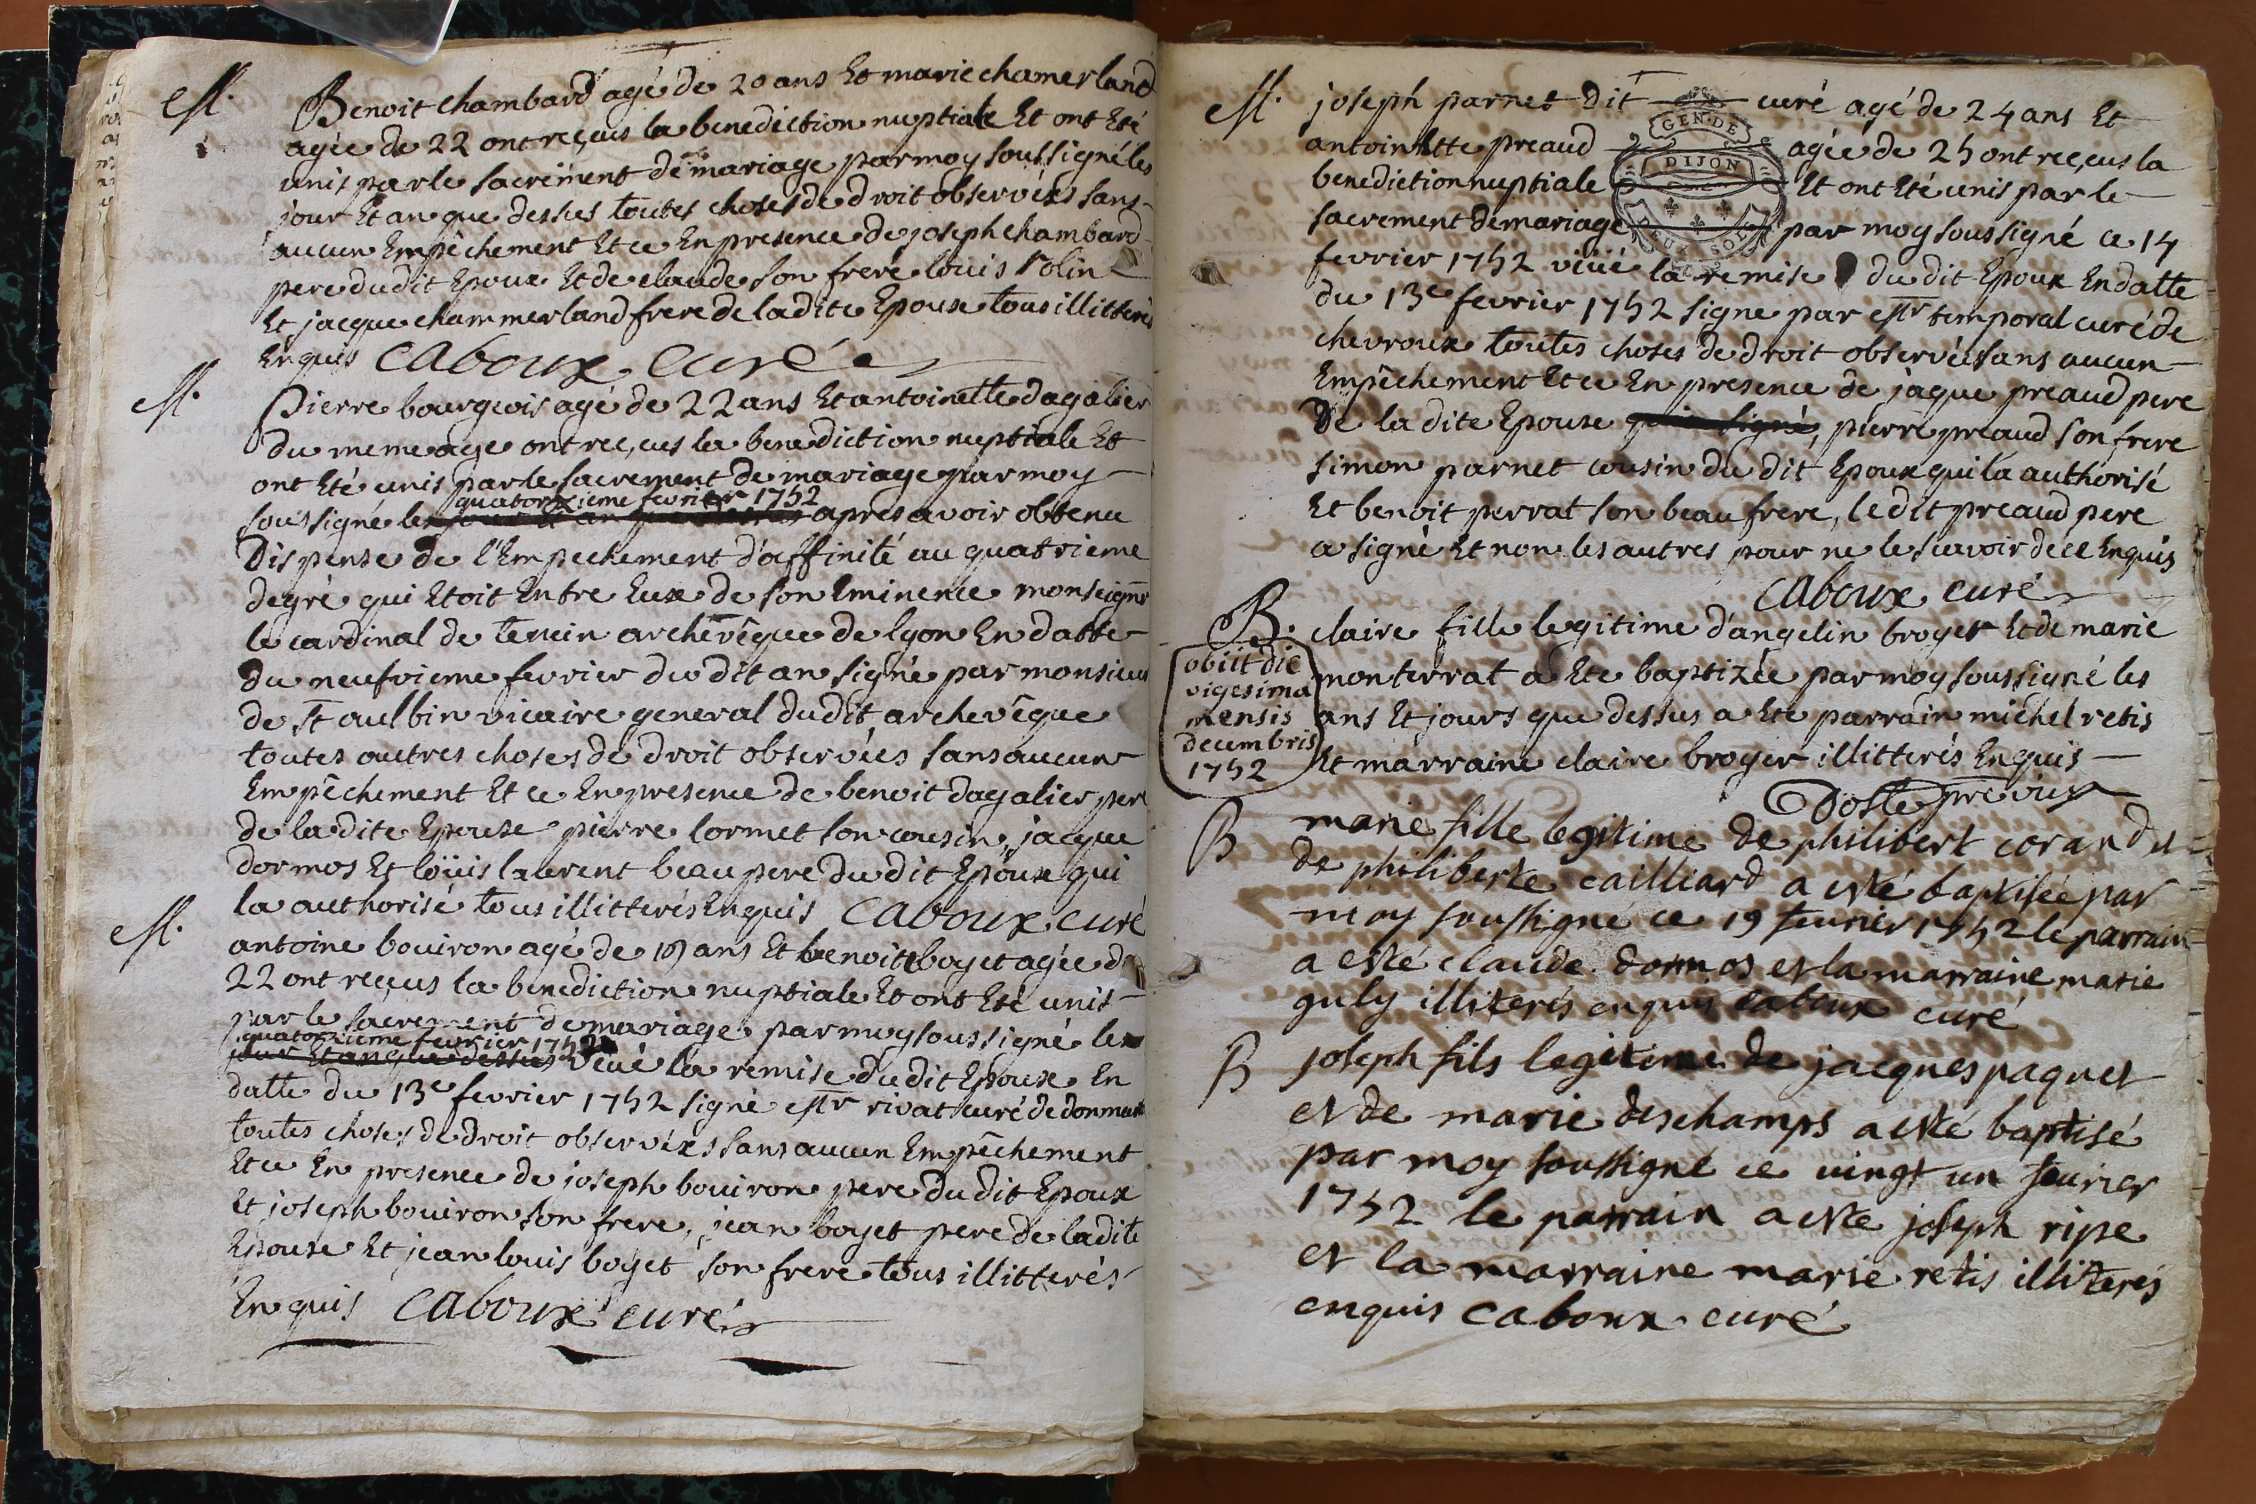 M. Benoit chambard agé de 20 ans Et marie chamerland
agée de 22 ont reçus la benediction nuptiale Et ont Eté
unis par le sacrement de mariage par moy soussigné les
jour Et an que dessus toutes choses de droit observées sans
aucun Empêchement Et ce En presence de joseph chambard
pere du dit Epoux Et de claude son frere louis rolin
Et jacque chammerland frere de la dite Epouse tous illitterés
Enquis caboux curé
M. Pierre bourgeois agé de 22 ans Et antoinette dagalier
du meme age ont reçus la benediction nuptiale Et
ont Eté unis par le sacrement de mariage par moy
quatorzieme fevrier 1752
soussigné les jour Et an que dessus apres avoir obtenu
Dispense de l'Empechement d'affinité au quatrieme
degré qui Etoit Entre Eux de son Eminence monseignr
le cardinal de tencin archevêque de lyon En datte
du neufvieme fevrier du dit an signé par monsieur
de st aulbin vicaire general dudit archevêque
toutes autres choses de droit observées sans aucun
Empêchement Et ce En presence de benoit dagalier pere
de la dite Epouse pierre lormet son cousin, jacque
dormos Et loüis laurent beau pere du dit Epoux qui
la authorisé tous illitterés Enquis caboux curé
M. antoine bouiron agé de ans Et benoite boyet agée de
22 ont reçus la benediction nuptiale Et ont Eté unis
par le sacrement de mariage par moy soussigné les
quatorzieme fevrier 1752
jour Et an que dessus veüe la remise du dit Epoux En
datte du 13e fevrier 1752 signé Mr rivat curé de donmar
toutes choses de droit observées sans aucun Empêchement
Et ce En presence de joseph bouiron pere du dit Epoux
Et joseph bouiron son frere, jean boyet pere de la dite
Epouse Et jean louis boyet son frere tous illitterés
Enquis caboux curé
M. joseph parnet dit curé agé de 24 ans Et
antoinette preaud agée de 25 ont reçus la
benediction nuptiale Et ont Eté unis par le
sacrement de mariage par moy soussigné ce 14
GEN. DE
DIJON
DEUX SOLS
fevrier 1752 veüe la remise du dit Epoux En datte
du 13e fevrier 1752 signe par Mr temporal curé de
chevroux toutes choses de droit observées sans aucun
Empêchement Et ce En presence de jaque preaud pere
De la dite Epouse qui a signé, pierre preaud son frere
simon parnet cousin du dit Epoux qui la authorisé
Et benoit perrat son beau frere, le dit preaud pere
a signé Et non les autres pour ne le scavoir de ce Enquis
caboux curé
B. claire fille legitime d'angelin broyer Et de marie
monterrat a Ete baptizée par moy soussigné les
ans Et jours que dessus a Ete parrain michel retis
Et marraine claire broyer illitterés Enquis
obiit die
vigesima
mensis
decembris
1752
B marie fille legitime de philibert corand et
de philiberte cailliard a esté baptisée par
moy soussigne ce 19 fevrier 1752 le parrain
a esté claude dormos et la marraine marie
guly illiterés enquis caboux curé
B joseph fils legitime de jacques paquet
et de marie deschamps a esté baptisé
par moy soussigné ce vingt un fevrier
1752 le parrain a este joseph ripe
et la marraine marie retis illiterés
enquis caboux curé